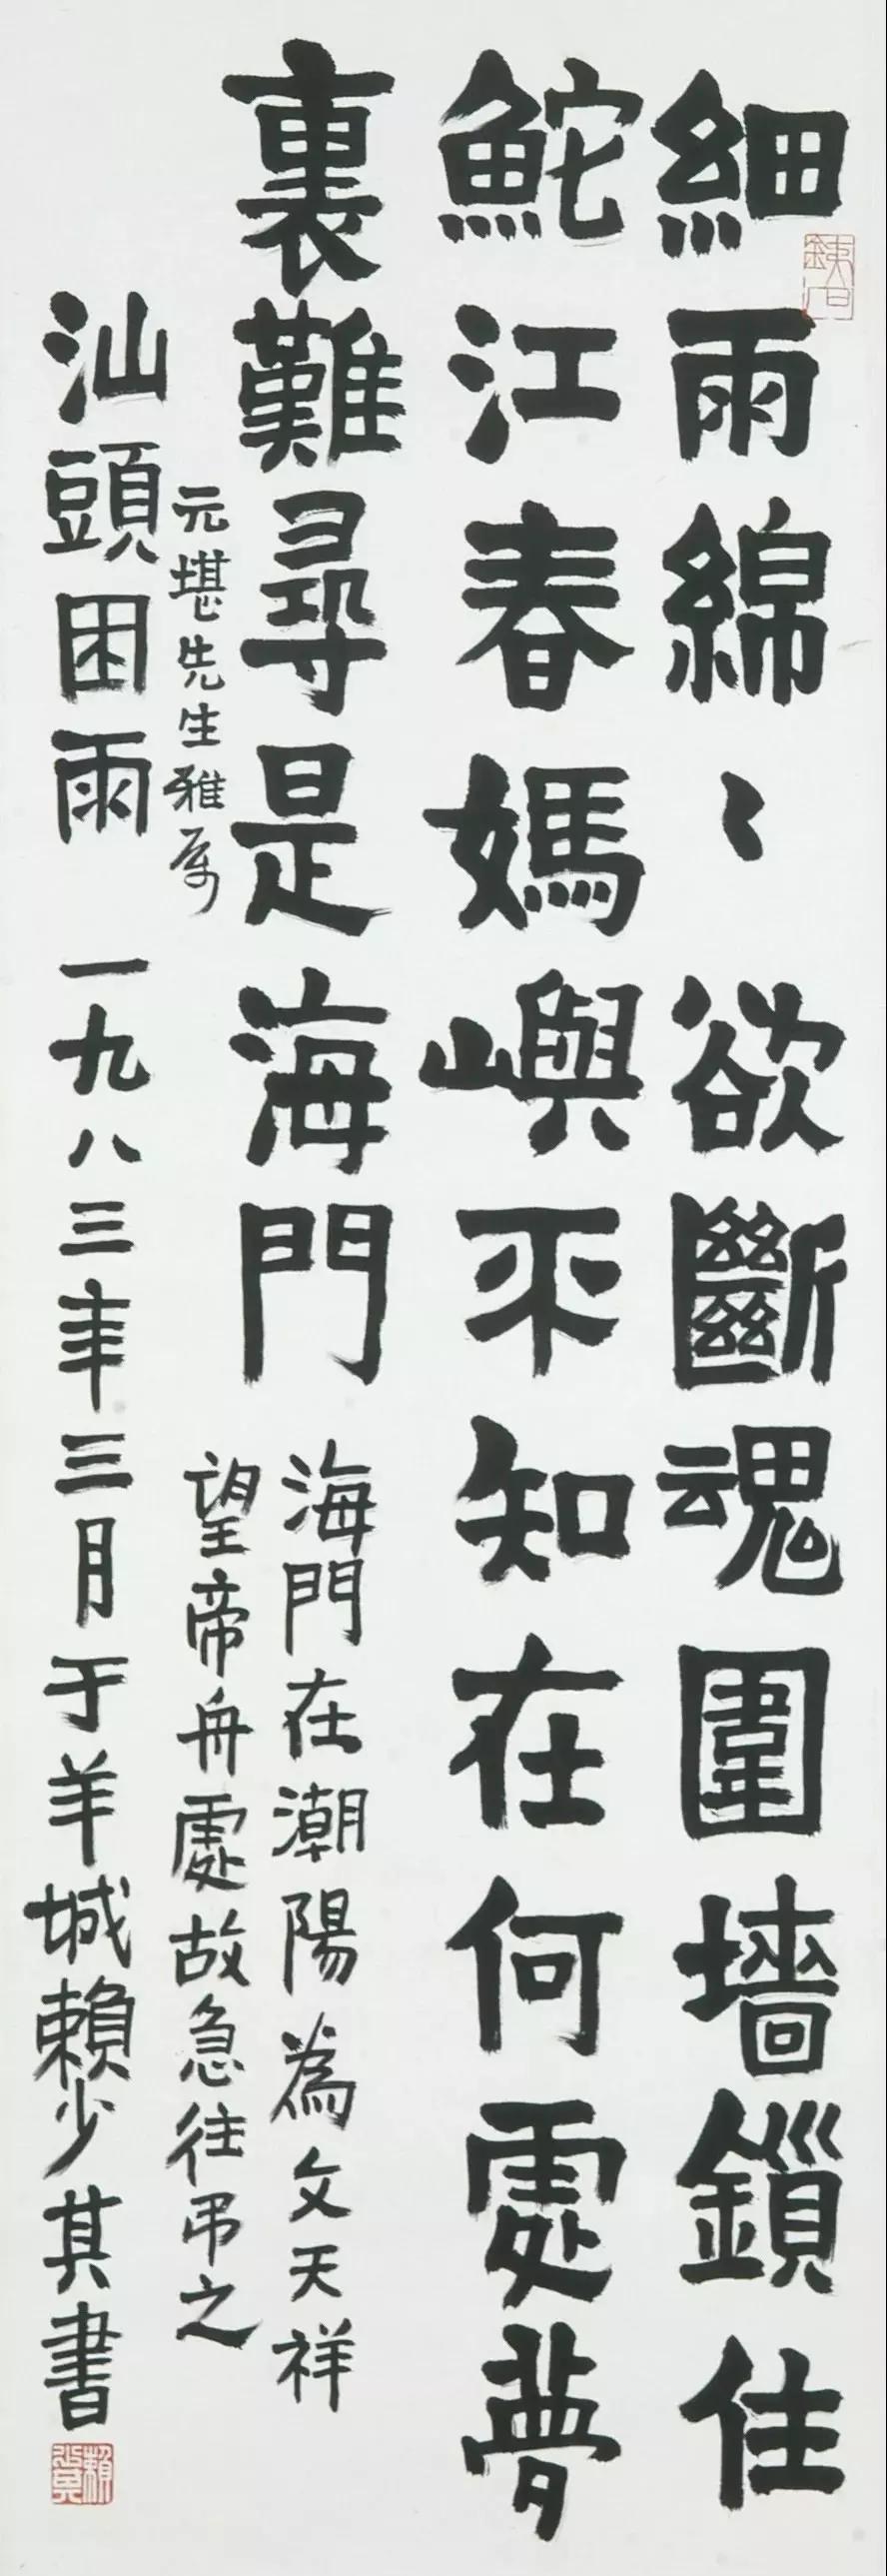 細雨綿〻欲斷魂圍墻鎖住
鮀江春媽嶼不知在何處夢
裏難尋是海門
海門在潮陽為文天祥
望帝舟處故急往吊之
元堪先生雅属
汕頭困雨 一九八三年三月于羊城賴少其書
賴少其